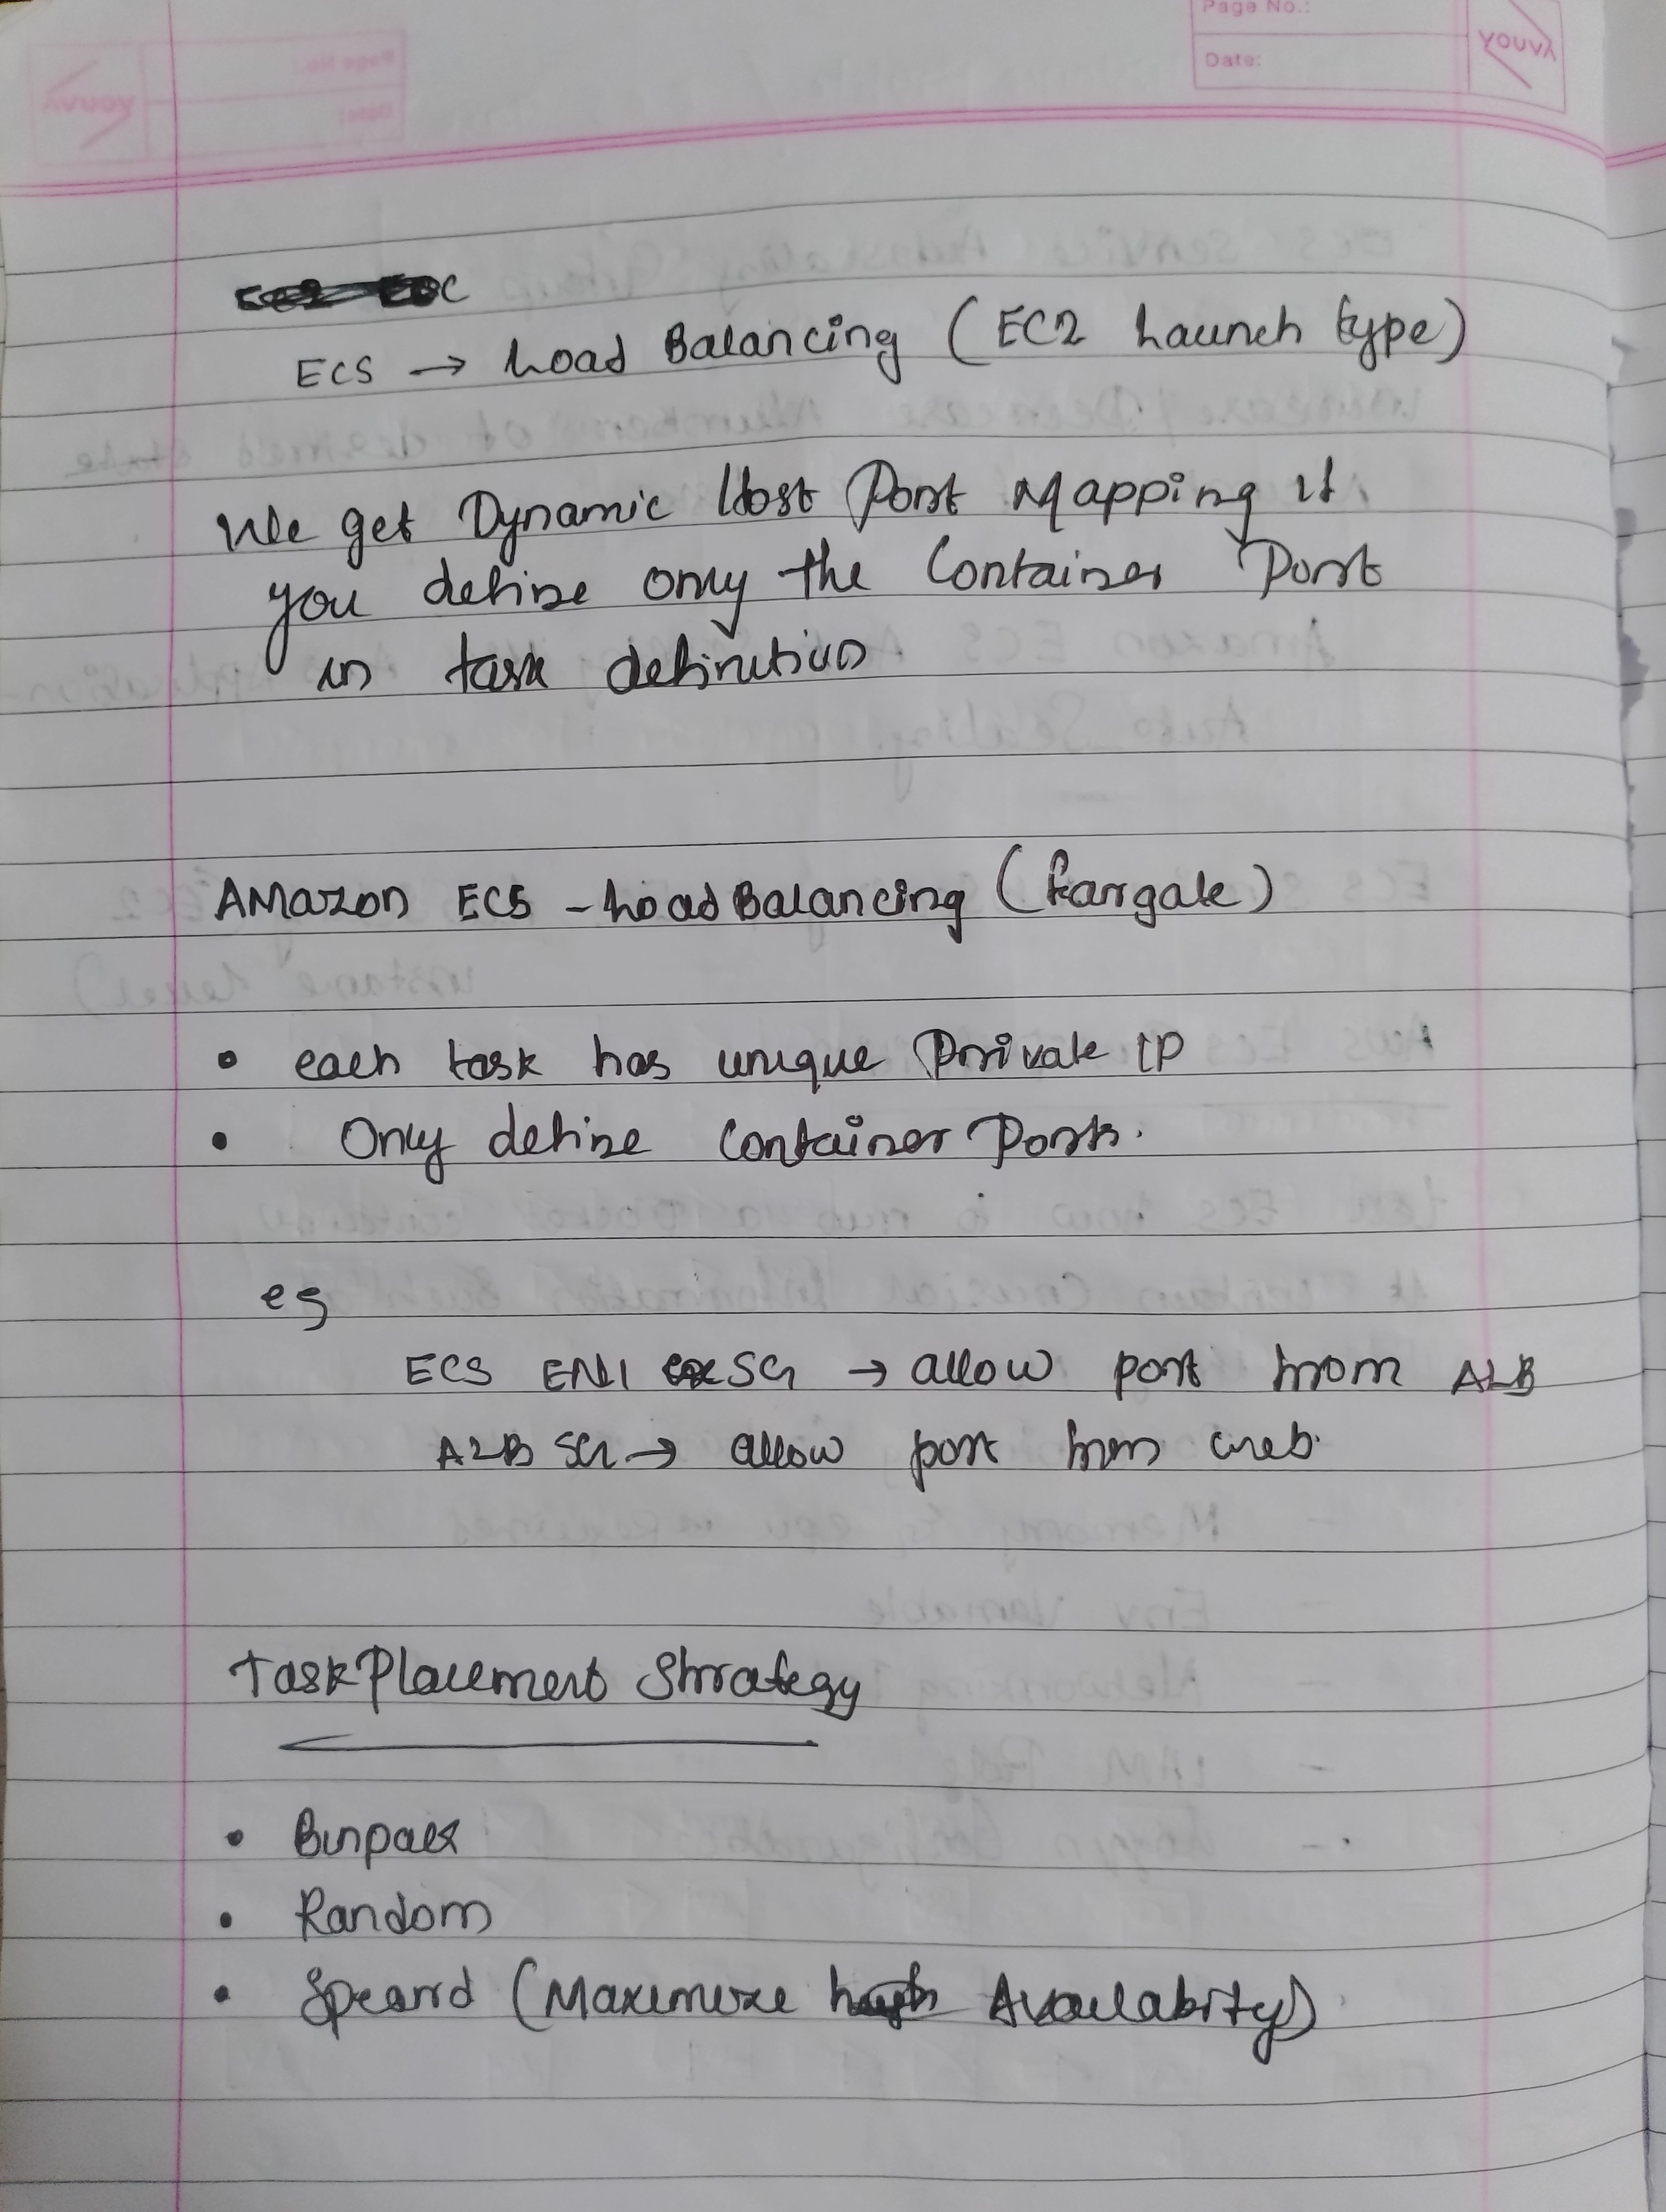 Page No.:
Date:
YOUVA
ECS → Load Balancing (EC2 Launch type)
We get Dynamic Host Port Mapping if
you define only the Container Port
in task definition
Amazon ECS - Load Balancing (Fargate)
• each task has unique Private IP
• Only define Container Port.
eg
ECS ENI SG → allow port from ALB
ALB SG → allow port from web.
Task Placement Strategy
• Binpack
• Random
• Speard (Maximize high Availability)